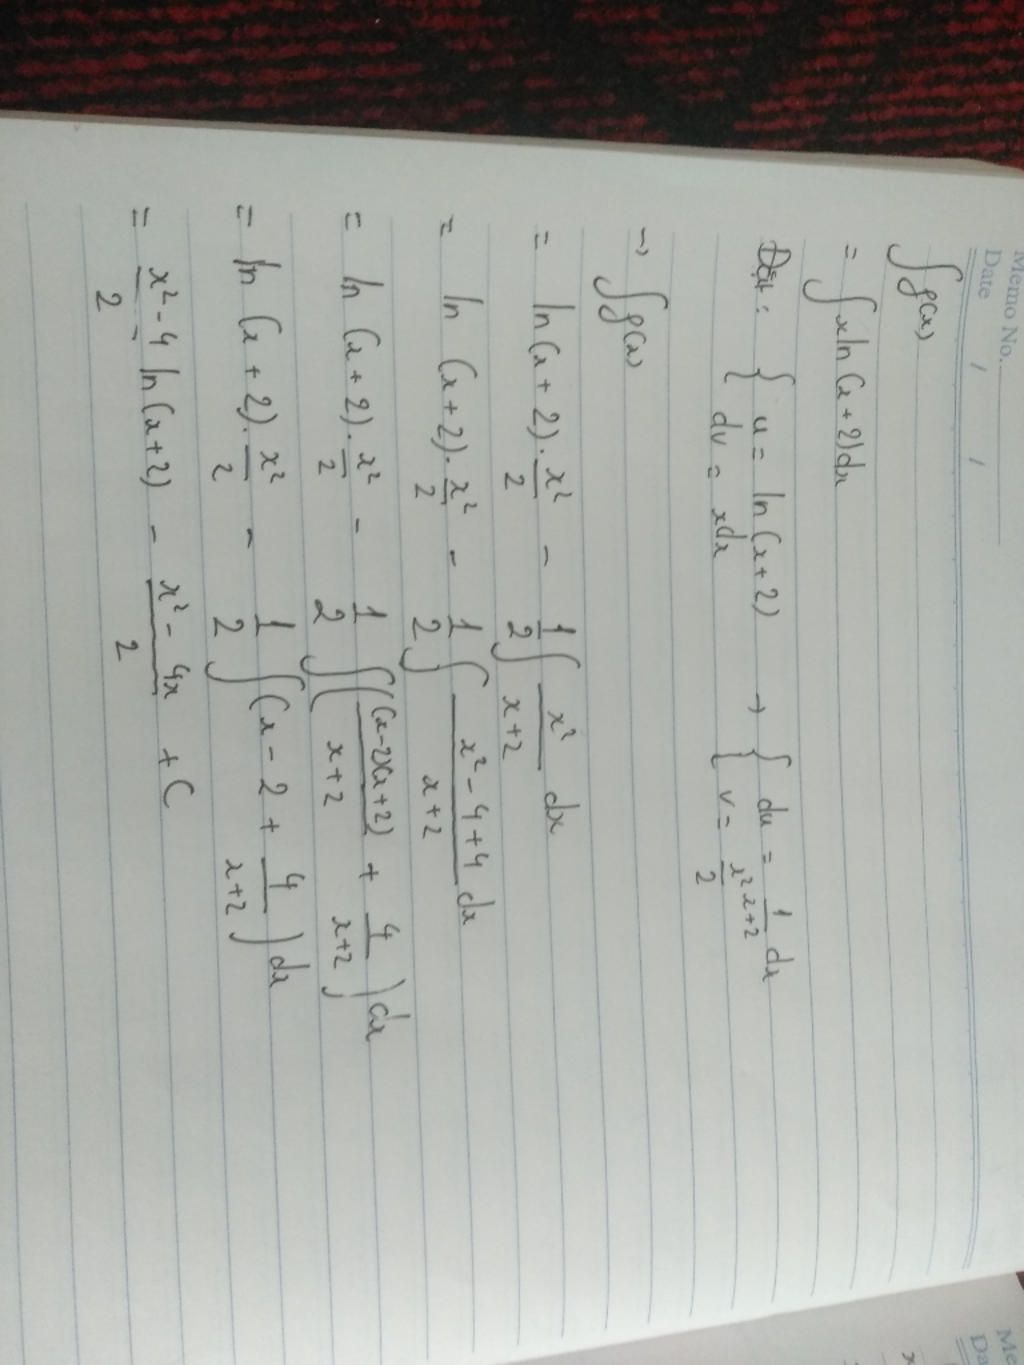 Memo No.
Date / /
∫f(x)
= ∫xln(x+2)dx
Đặt: { u = ln(x+2) → { du = 1/(x+2) dx
{ dv = xdx { v = x²/2
→ ∫f(x)
= ln(x+2).x²/2 - 1/2 ∫ x²/(x+2) dx
= ln(x+2).x²/2 - 1/2 ∫ (x²-4+4)/(x+2) dx
= ln(x+2).x²/2 - 1/2 ∫((x-2)(x+2)/(x+2) + 4/(x+2))dx
= ln(x+2).x²/2 - 1/2 ∫(x-2+4/(x+2))dx
= (x²-4)/2 ln(x+2) - (x²-4x)/2 + C